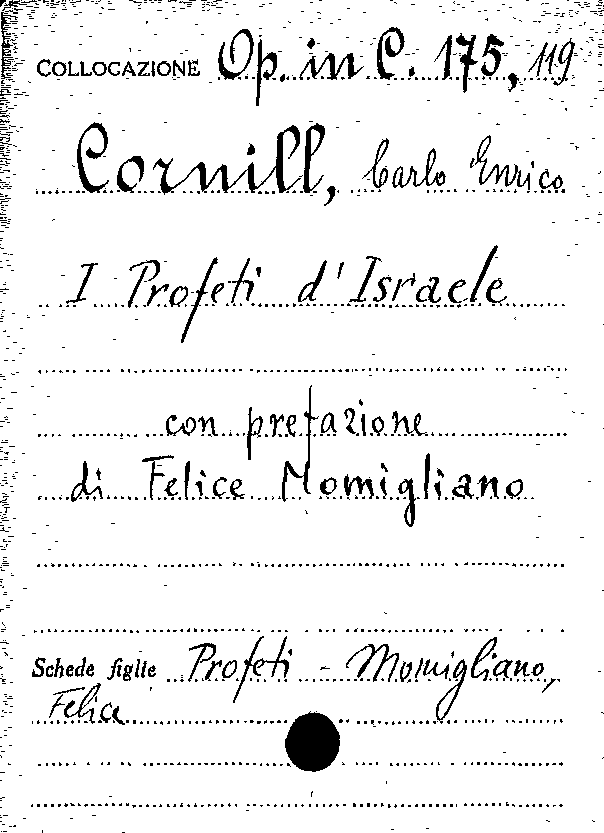 COLLOCAZIONE Op. in C. 175, 119
Cornill, Carlo Enrico
I Profeti d'Israele
con prefazione
di Felice Momigliano
Schede figlie Profeti - Momigliano,
Felice